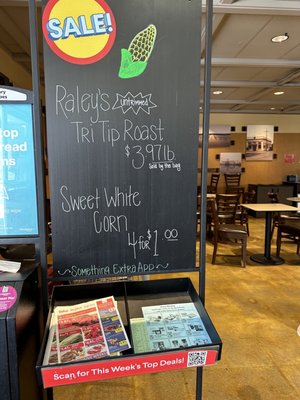 SALE!
Raley's Untrimmed
Tri Tip Roast
$3.97lb.
Sold by the bag
Sweet White
Corn
4 for $1.00
~Something Extra App~
Scan for This Week's Top Deals!